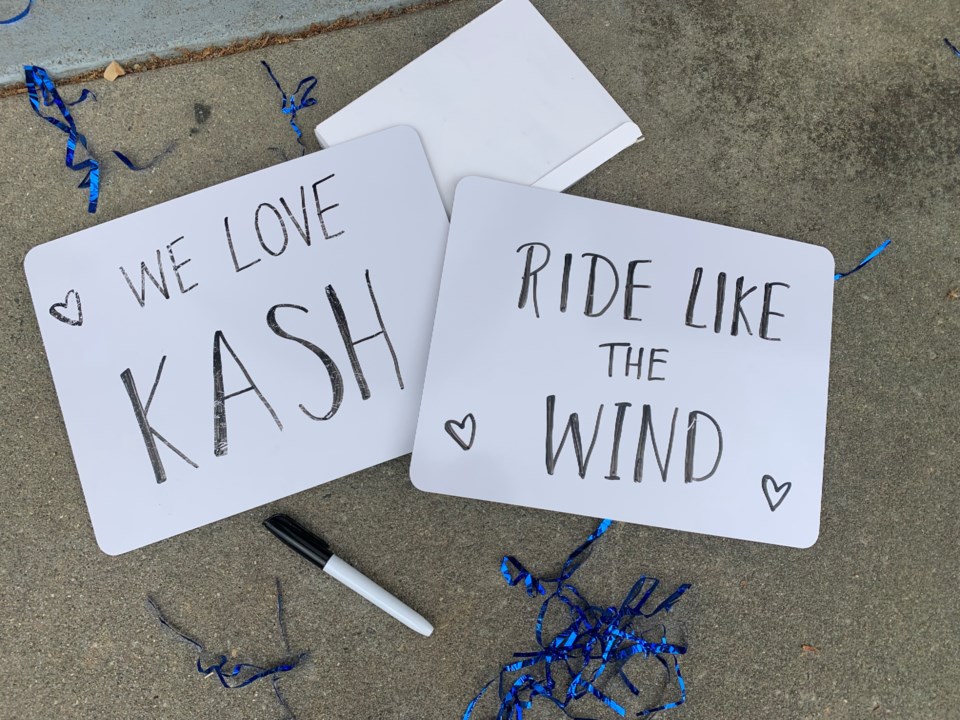 WE LOVE
KASH
RIDE LIKE
THE
WIND